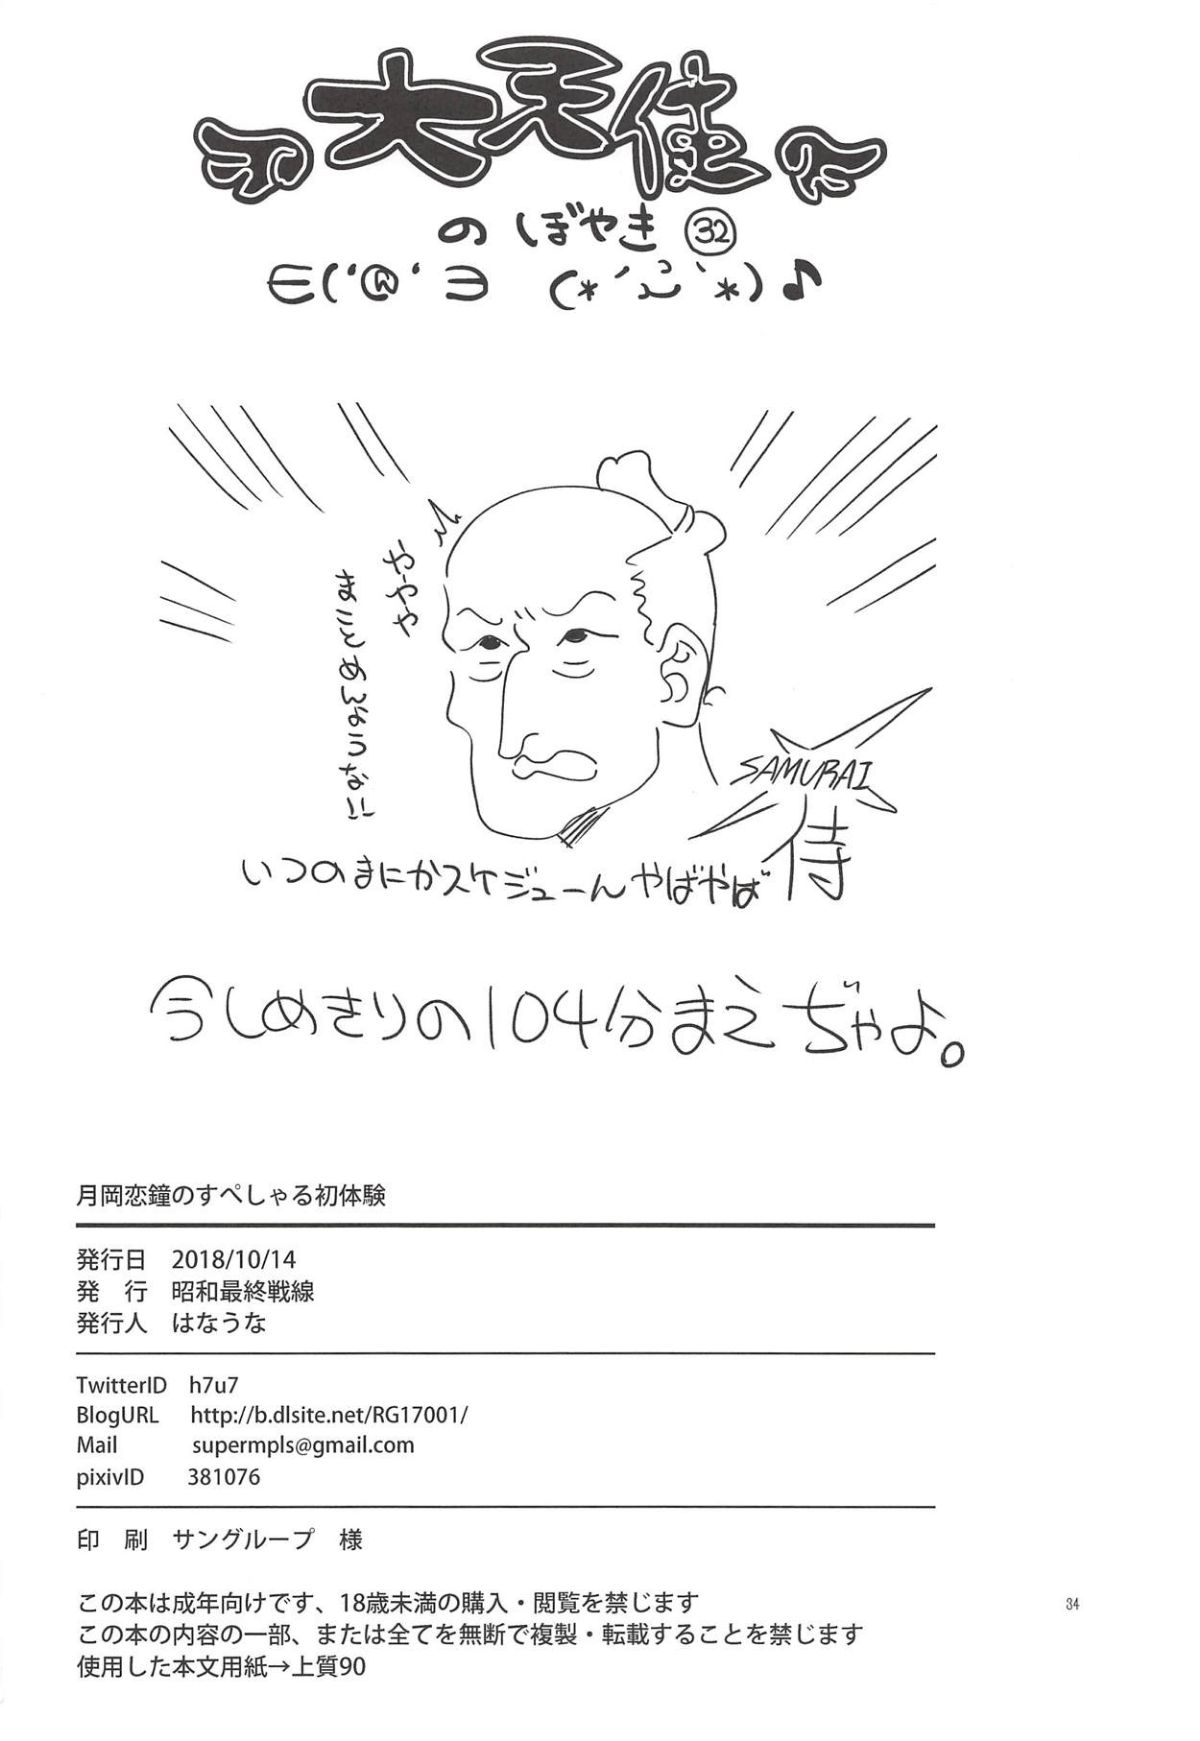 大天使
のぼやき 32
∈('@'∋ (*´ω`*)♪
ややや
まことめんような!!
SAMURAI
侍
いつのまにかスケジューんやばやば
今しめきりの104分まえぢゃよ。
月岡恋鐘のすぺしゃる初体験
発行日 2018/10/14
発 行 昭和最終戦線
発行人 はなうな
TwitterID h7u7
BlogURL http://b.dlsite.net/RG17001/
Mail supermpls@gmail.com
pixivID 381076
印 刷 サングループ 様
この本は成年向けです、18歳未満の購入・閲覧を禁じます
この本の内容の一部、または全てを無断で複製・転載することを禁じます
使用した本文用紙→上質90
34